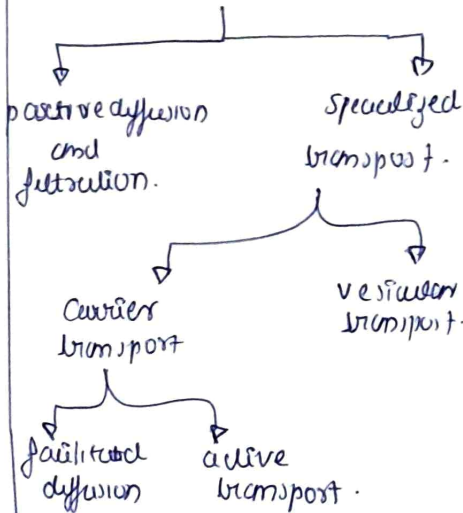 passive diffusion
and
filtration.
specialized
transport.
carrier
transport
vesicular
transport.
facilitated
diffusion
active
transport.